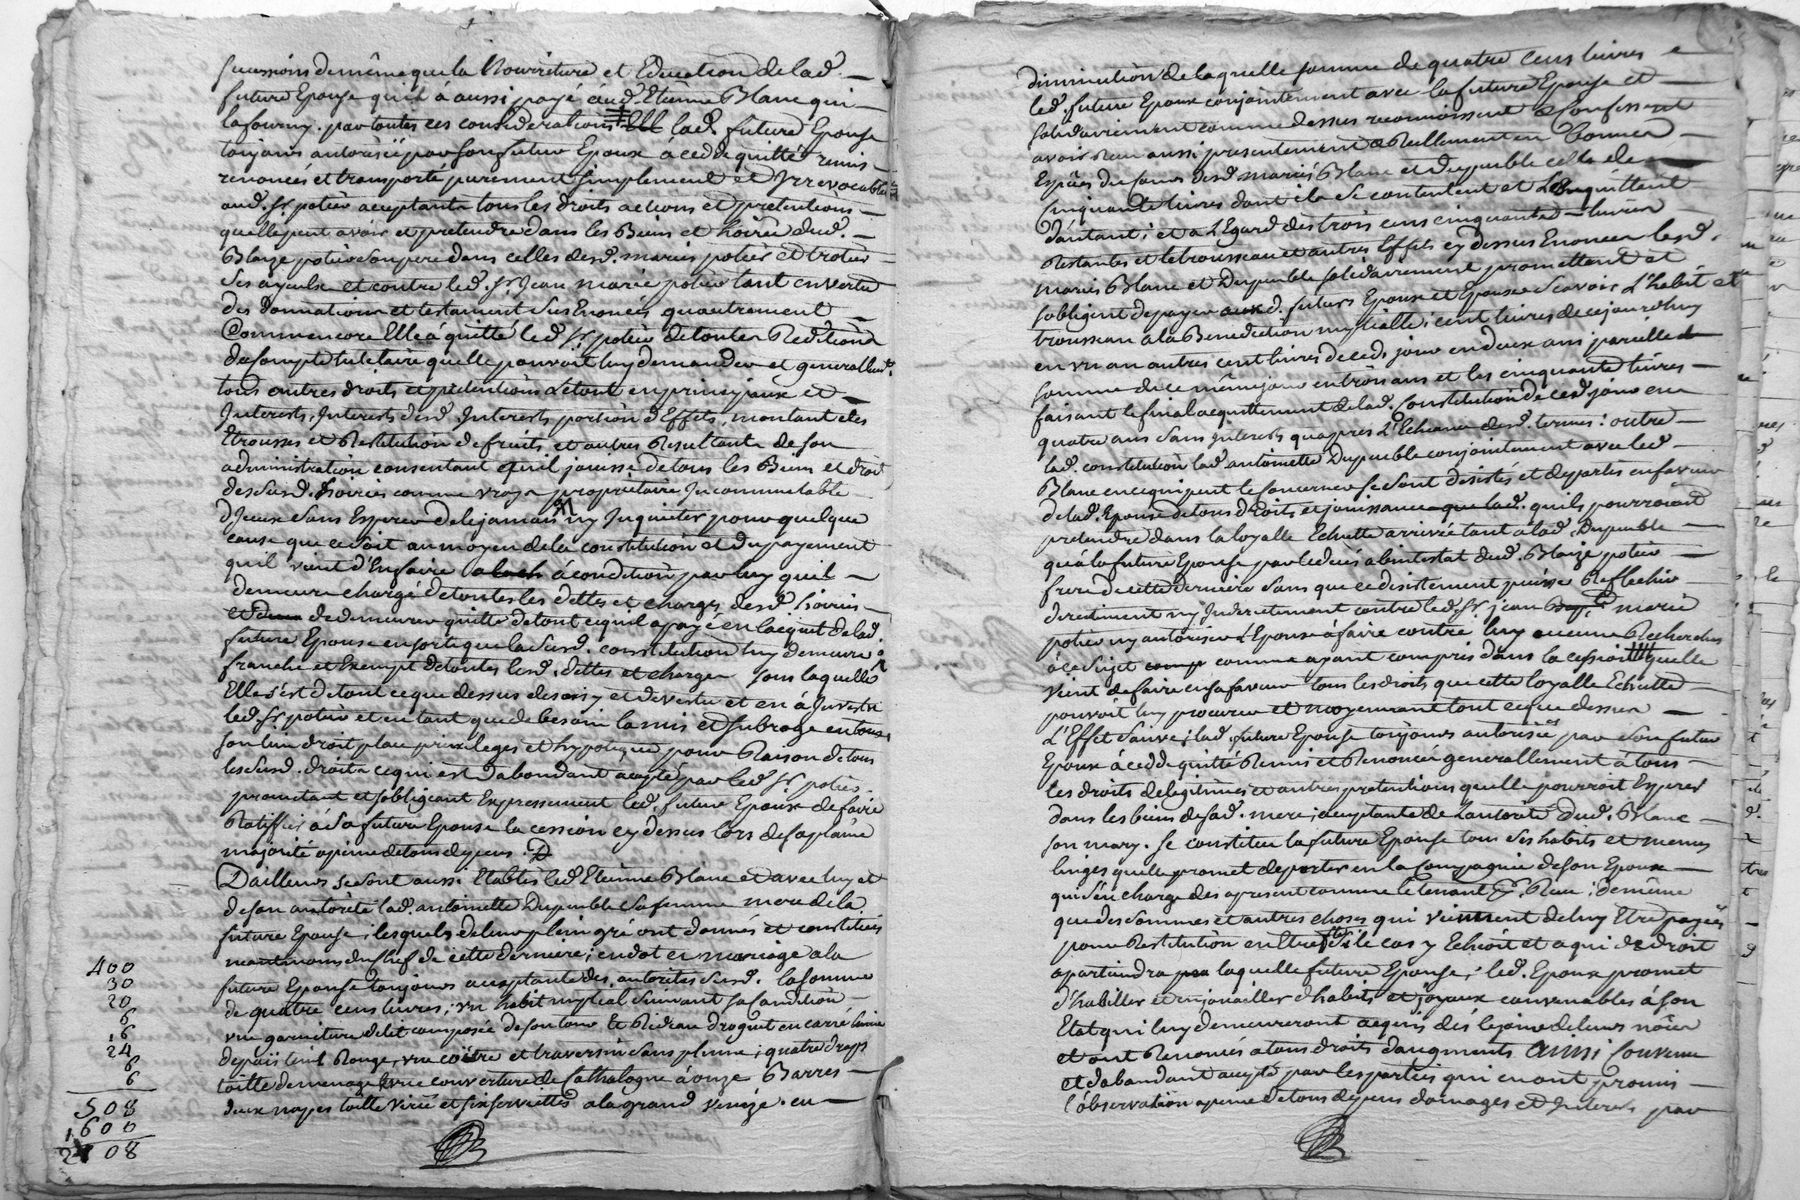 sucessions demême que la Nourriture et Education de lad.
future Epouse qu'il a aussi payé aud. Etienne Blanc qui
la fourny. par toutes ces considerations lad. future Epouse
toujours autorisée par son futur Epoux à cedde quitté remis
renoncés et transporté purement simplement et Yrrevocablem.t
aud. Sr. potier acceptant tous les droits actions et pretentions
quelle peut avoir et pretendre dans les Biens et hoirie dud.
Blaize potier son pere dans celles desd. mariés potier et trotier
ses ayeulx et contre led. Sr. Jean marie potier tant en vertu
des donnations et testament sus Enoncés qu'autrement
Comm'encore Elle à quitté led. Sr. potier de toutes Redition
de Compte tutelaire quelle pouvoit luy demander et generallem.t
tous autres droits et pretentions letout en principaux et
Interests, Interests desd. Interests, portion d'Effets, montant des
Etrousses et Restitution de fruits et autres Resultants de son
administration consentant qu'il jouisse de tous les Biens et droits
desdusd. hoiries comme vray proprietaire Incommutable
d'Iceux sans Esperer de le jamais ny Inquieter pour quelque
cause que ce soit au moyen de la constitution et du payement
qu'il vient d'En faire à condition par luy qu'il
demeure chargé de toutes les dettes et charges desd. hoiries
de demeurer quitte de tout ce qu'il a payé en lacquit de lad.
future Epouse en sorte que la susd. constitution luy demeure
franche et Exempt de toutes lesd. dettes et charges sous laquelle
Elle s'est de tout ce que dessus desaisy et devestu et en à Investi
led. Sr. potier et en tant que de besoin la mis et subrogé en tous
son lieu droit place privileges et hypoteque pour Raison de tous
lesdusd. droits ce qui est d'abondant accepté par led. Sr. potier
promettant et s'obligeant Expressement led. futur Epoux de faire
Ratiffier à sa future Epouse la cession cy dessus lors de sa plaine
majorité a peine de tous depens.
D'ailleurs se sont aussi Etablis led. Etienne Blanc et avec luy et
de son autorité lad. antoinette Dupeuble sa femme mere de la
future Epouse; lesquels de leur plein gré ont donnés et constitués
neantmoins du chef de cette derniere; en dot et mariage a la
future Epouse toujours acceptante des autorités susd. la somme
de quatre cens livres; vn habit nuptial suivant sa condition
vne garniture de lit composée de son tour de Rideau droguet en carré laine
depaïs teint Rouge, vne coitre et traversin sans plume; quatre draps
toille de menage vne couverture de Cathalogne à onze Barres
deux napes toille virée et six serviettes a la grand Venize. en
400
30
20
6
16
24
6
6
508
1600
2108
diminution de laquelle somme de quatre cens livres
led. futur Epoux conjointement avec la future Epouse et
solidairement comme dessus reconnoissent & Confessent
avoir Reçu aussi presentement & Reellement en Bonnes
Especes du Cours desd. mariés Blanc et Dupeuble celle de
Cinquante livres dont ils se contentent et l'En quittent
d'autant; et a l'Egard des trois cens cinquante livres
Restantes et le trousseau et autres Effets cy dessus Enoncés lesd.
mariés Blanc et Dupeuble solidairement promettent et
s'obligent de payer auxd. futurs Epoux et Epouse sçavoir l'habit et
trousseau a la Benediction nuptialle; cent livres de cejourdhuy
en vn an autres cent livres de ced. jour en deux ans pareille
somme de ce même jour en trois ans et les cinquante livres
faisant le final acquittement de lad. Constitution de ced. jour en
quatre ans sans Interests qu'apres l'Echeance desd. termes: outre
lad. constitution lad. antoinette Dupeuble conjointement avec led.
Blanc en ce qui peut le concerner se sont desistés et departis en faveur
de lad. Epouse de tous droits et jouissance que lad. qu'ils pourroient
pretendre dans la loyalle Echutte arrivée tant a lad. Dupeuble
qu'à la future Epouse par le decés abintestat dud. Blaize potier
frere de cette derniere sans que ce desistement puisse Reflechir
directement ny Indirectement contre led. Sr. jean marie
potier ny autoriser l'Epouse à faire contre luy aucune Recherches
à ce sujet comme ayant compris dans la cession quelle
vient de faire en sa faveur tous les droits que cette loyalle Echutte
pouvoit luy procurer et moyennant tout ce que dessus
L'Effet sauve; lad. future Epouse toujours autorisée par son futur
Epoux à cedde quitté Remis et Renoncée generallement à tous
les droits de legitimes et autres pretentions quelle pourroit Esperer
dans les biens de sad. mere; acceptante de l'autorité dud. Blanc
son mary. se constitue la future Epouse tous ses habits et menus
linges quelle promet de porter en la Compagnie de son Epoux
qui s'en charge des apresent comme le tenant pr. Reçu; de même
que des sommes et autres choses qui viennent de luy Etre payées
pour Restitution en Etre faite si le cas y Echoit et a qui de droit
apartiendra laquelle future Epouse; led. Epoux promet
d'habiller et enjouailler d'habits et joyaux convenables à son
Etat qui luy demeureront acquis dés le jour de leurs nôces
et ont Renoncés a tous droits d'augments ainsi Convenu
et d'abondant accepté par les parties qui en ont promis
l'observation a peine de tous depens domages et Interests par